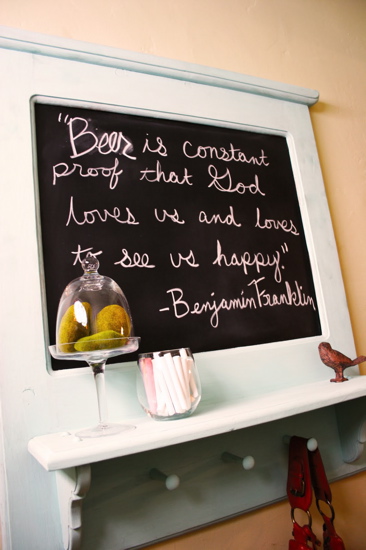 "Beer is constant
proof that God
loves us and loves
to see us happy."
-Benjamin Franklin